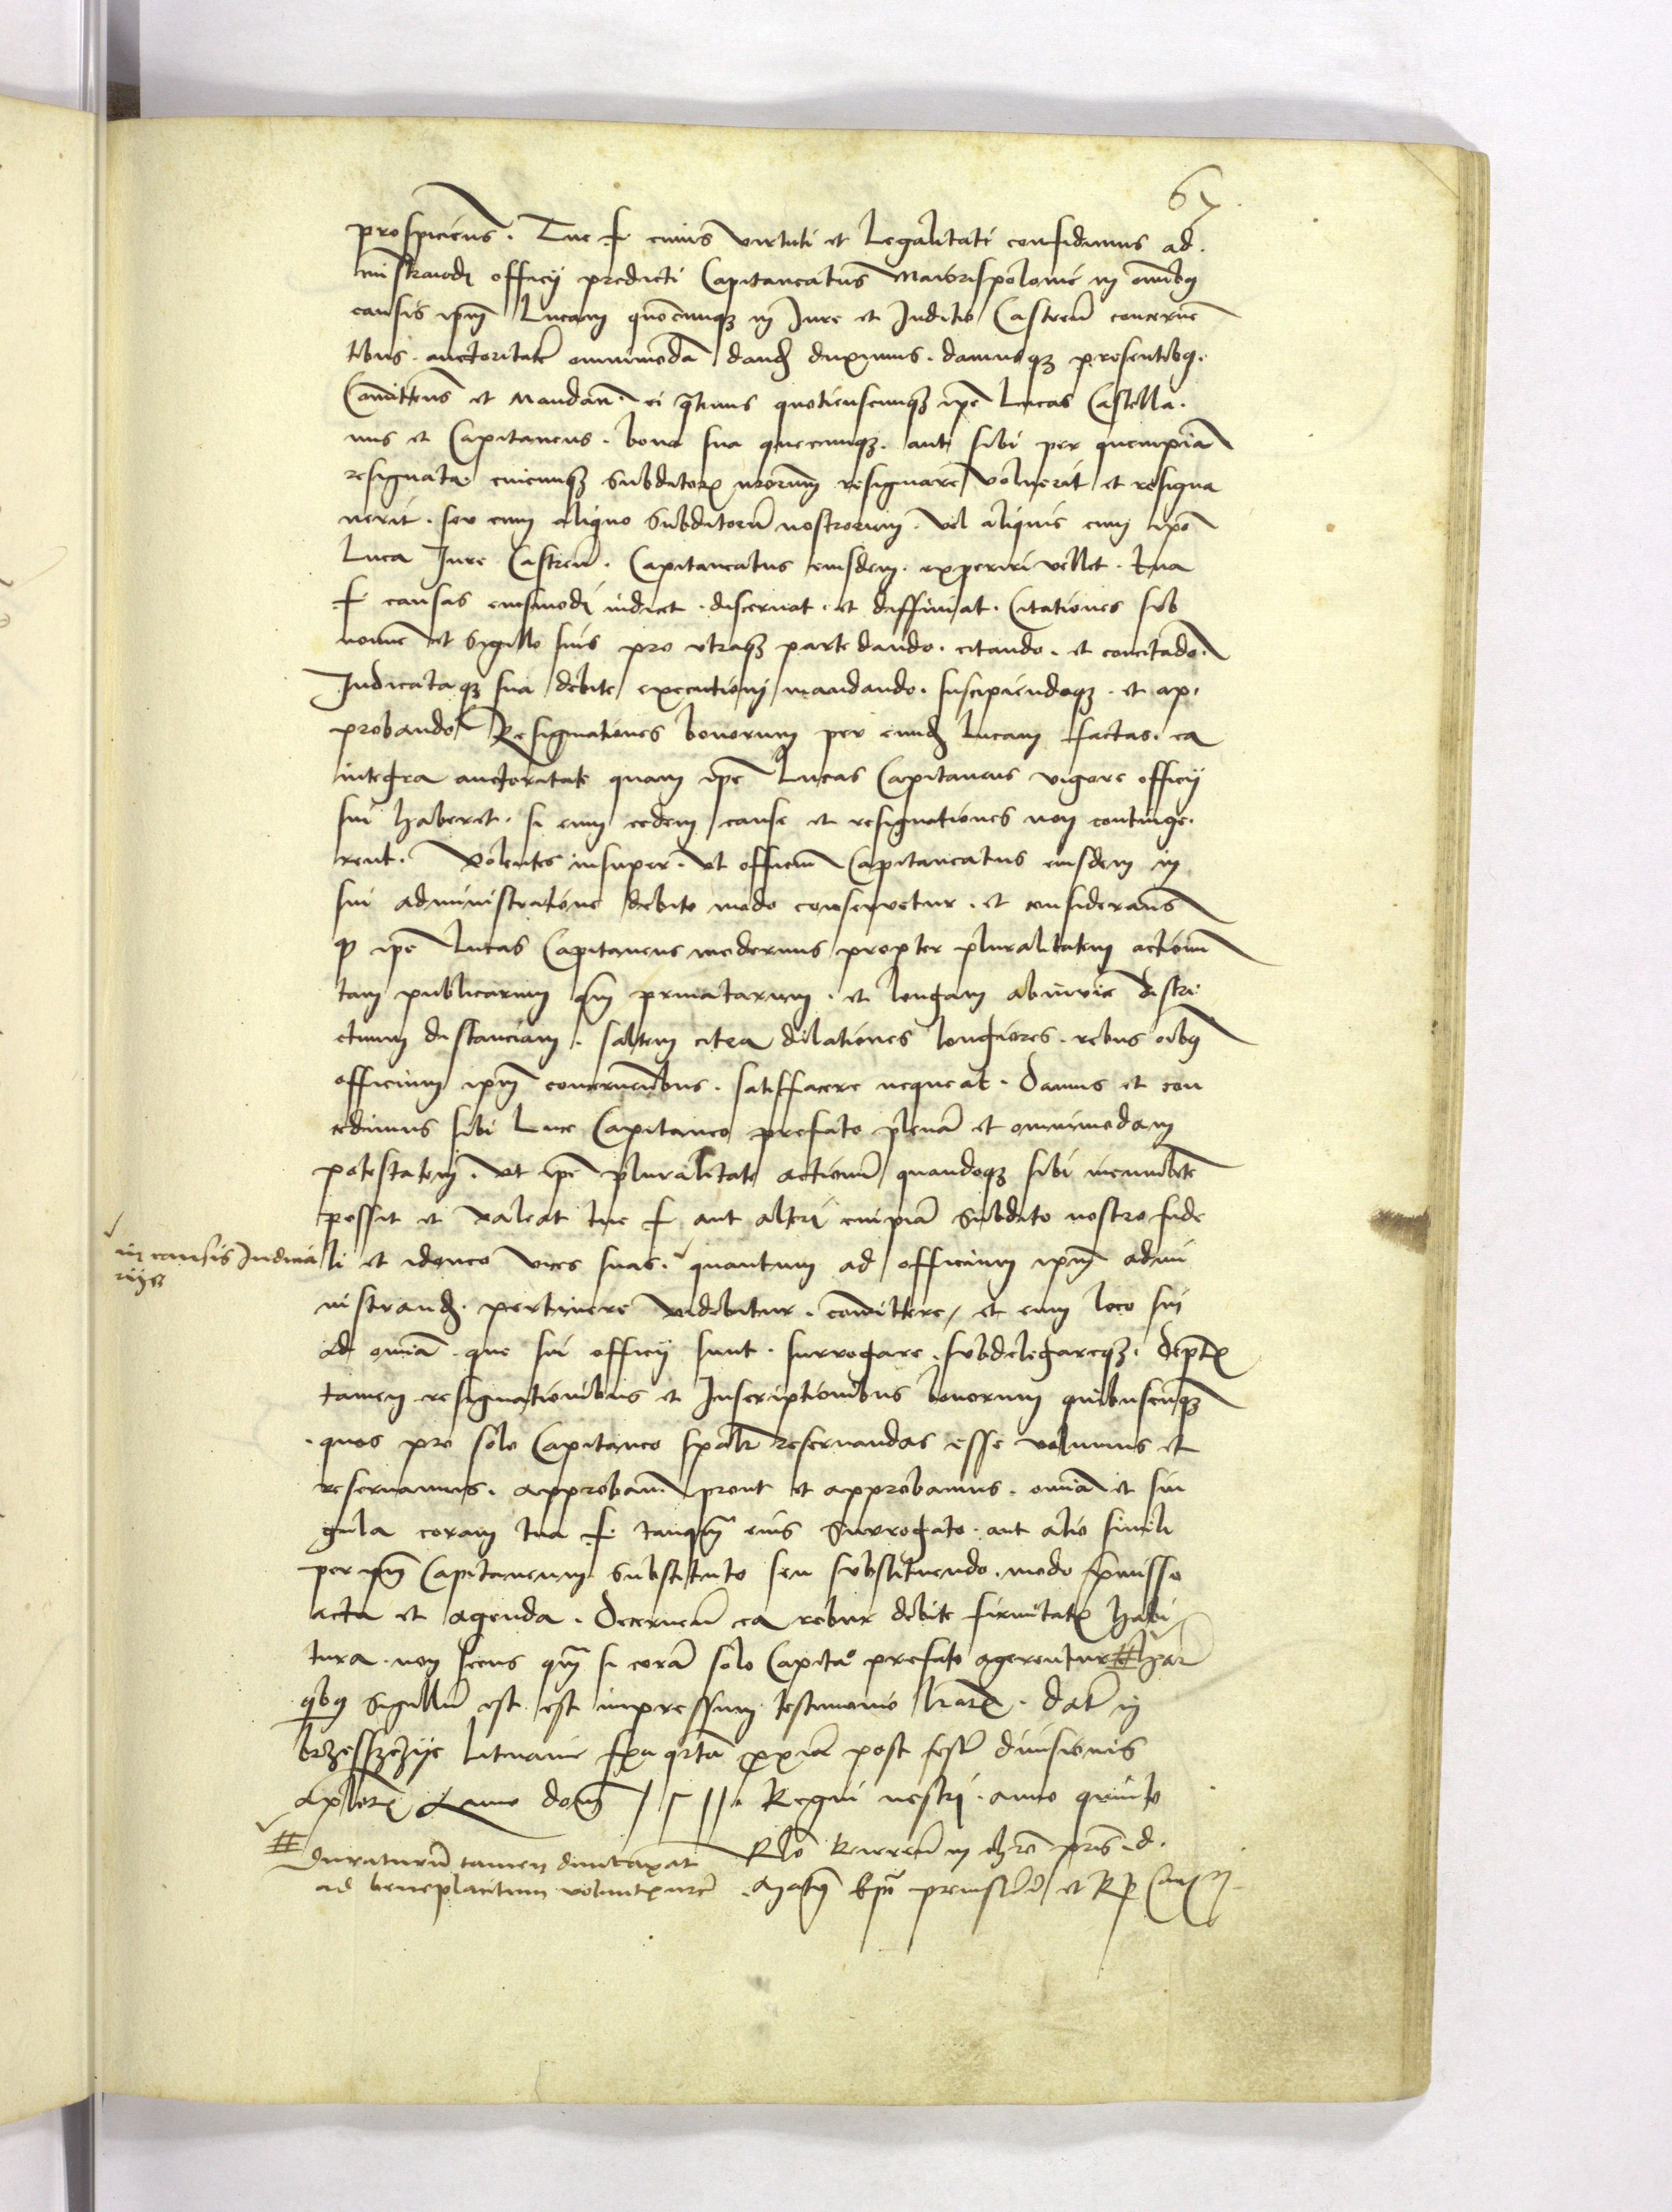 67
prospiciens. Tue f cuius virtuti et legalitati confidimus ad.
ministrandi officij predicti Capitaneatus Maiorispolonie in omibus
causis ipm Lucam quomcumqz in Jure et Juditio Castren concernen
tibus. auctoritatem omnimodam dandam duximus. damusqz presentibus.
Comittens et Mandan. ei qtenus quotienscumqz ipe Lucas Castella.
nus et Capitaneus. bona sua quecumqz. aut sibi per quempiam
resignata. cuicumqz subditorum nrorum resignare voluerit et resigna
uerit. seu cum aliquo subditorum nostrorum. vel aliquis cum ipo
Luca Jure Castren. Capitaneatus eiusdem. experiri vellet. tua
f causas eiusmodi iudicet. discernat. et diffiniat. Citationes sub
nomine et sigillo suis pro utraqz parte dando. citando. et concitando.
Judicataqz sua debite executioni mandando. suscipiendoqz. et ap.
probando Resignationes bonorum per eundem Lucam factas. ea
integra auctoritate quam ipe Lucas Capitaneus vigore officij
sui haberet. si eum eedem cause et resignationes non continge.
rent. Volentes insuper. ut officium Capitaneatus eiusdem in
sui administratione debito modo conseruetur. et considerans
q ipe Lucas Capitaneus modernus propter pluralitatem actionum
tam publicarum qm priuatarum. et longam abinuice distri
ctuum distanciam. saltem citra dilationes longiores. rebus oibus
officium ipm concernentibus. satisfacere nequeat. Damus et con
cedimus sibi Luce Capitaneo prefato plenam et omnimodam
potestatem. ut ipe pluralitate actionum quandoqz sibi incumbente
possit et valeat tue f aut alteri cuipiam subdito nostro fide
li et idoneo vices suas. quantum ad officium ipm admi
in causis Judicia
rijs
nistrandum. pertinere videbitur. comittere, et eum loco sui
ad omia. que sui officij sunt. surrogare. subdelegareqz. deptis
tamen resignationibus et Inscriptionibus bonorum quibuscumqz
quas pro solo Capitaneo spalr reseruandas esse volumus et
reseruamus. approbantes prout et approbamus. omia et sin
gula coram tua f. tanqm eius Surrogato. aut alio simili
per ipm Capitaneum substituto seu substituendo. modo premisso
acta et agenda. Decernentes ea robur debite firmitatis habi
tura. non secus qm si coram solo Capitaneo prefato agerentur # har
qbus sigillum est est impressum testimonio lrarum. Dat in
brzesszczye Lituanie fria qrta proxia post festum diuisionis
Aplorum Anno domi 1511. Regni nestri. anno quinto
# Duraturum tamen dumtaxat
ad beneplacitum
Rlo Reueren in chro pris. d.